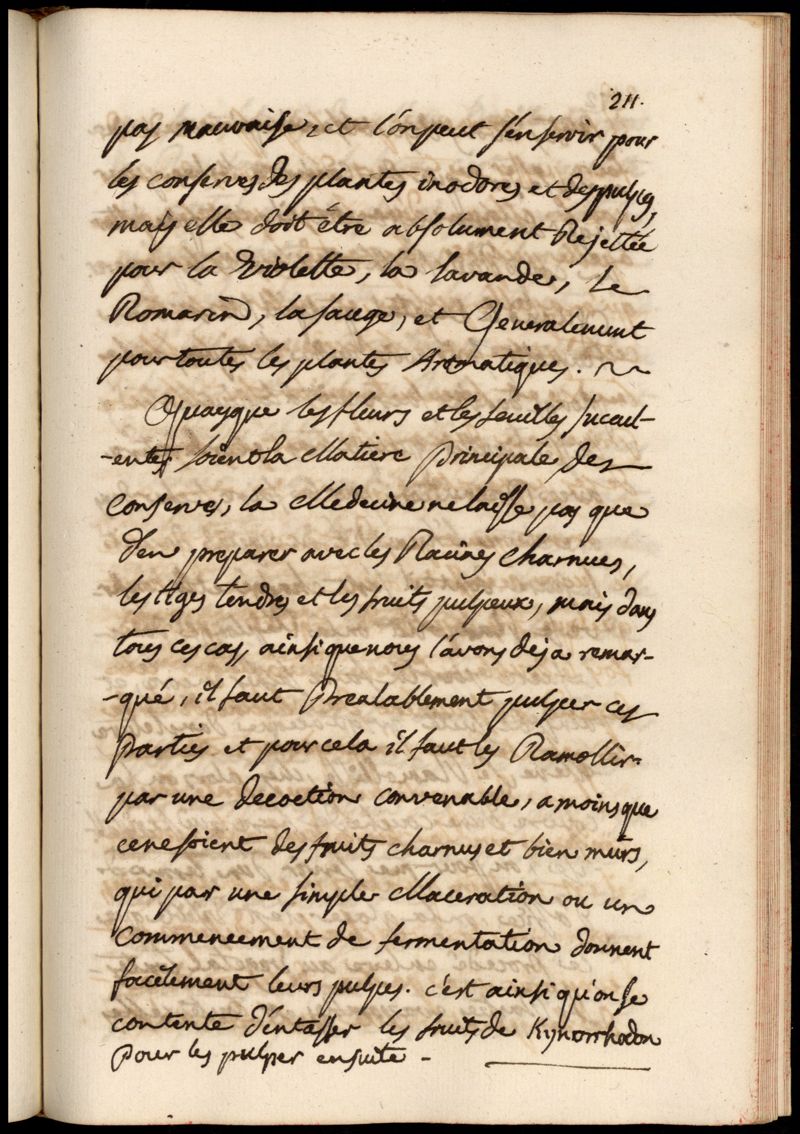 211.
pas mauvaise, et l'on peut s'en servir pour
les conserves des plantes inodores et des pulpes,
mais elle doit être absolument Rejettée
pour la violette, la lavande, le
Romarin, la sauge, et Generalement
pour toutes les plantes Aromatiques.
Quoyque les fleurs et les feuilles sucul-
-entes soient la Matiere Principale des
conserves, la Medecine ne laisse pas que
d'en preparer avec les Racines charnues,
les tiges tendres et les fruits pulpeux, mais dans
tous ces cas, ainsi que nous l'avons deja remar-
-qué, il faut Prealablement pulper ces
parties et pour cela il faut les Ramollir
par une decoction convenable, a moins que
ce ne soient des fruits charnus et bien mûrs,
qui par une simple Maceration ou un
commencement de fermentation donnent
facilement leurs pulpes. c'est ainsi qu'on se
contente d'entasser les fruits de Kynorrhodon
pour les pulper ensuite -